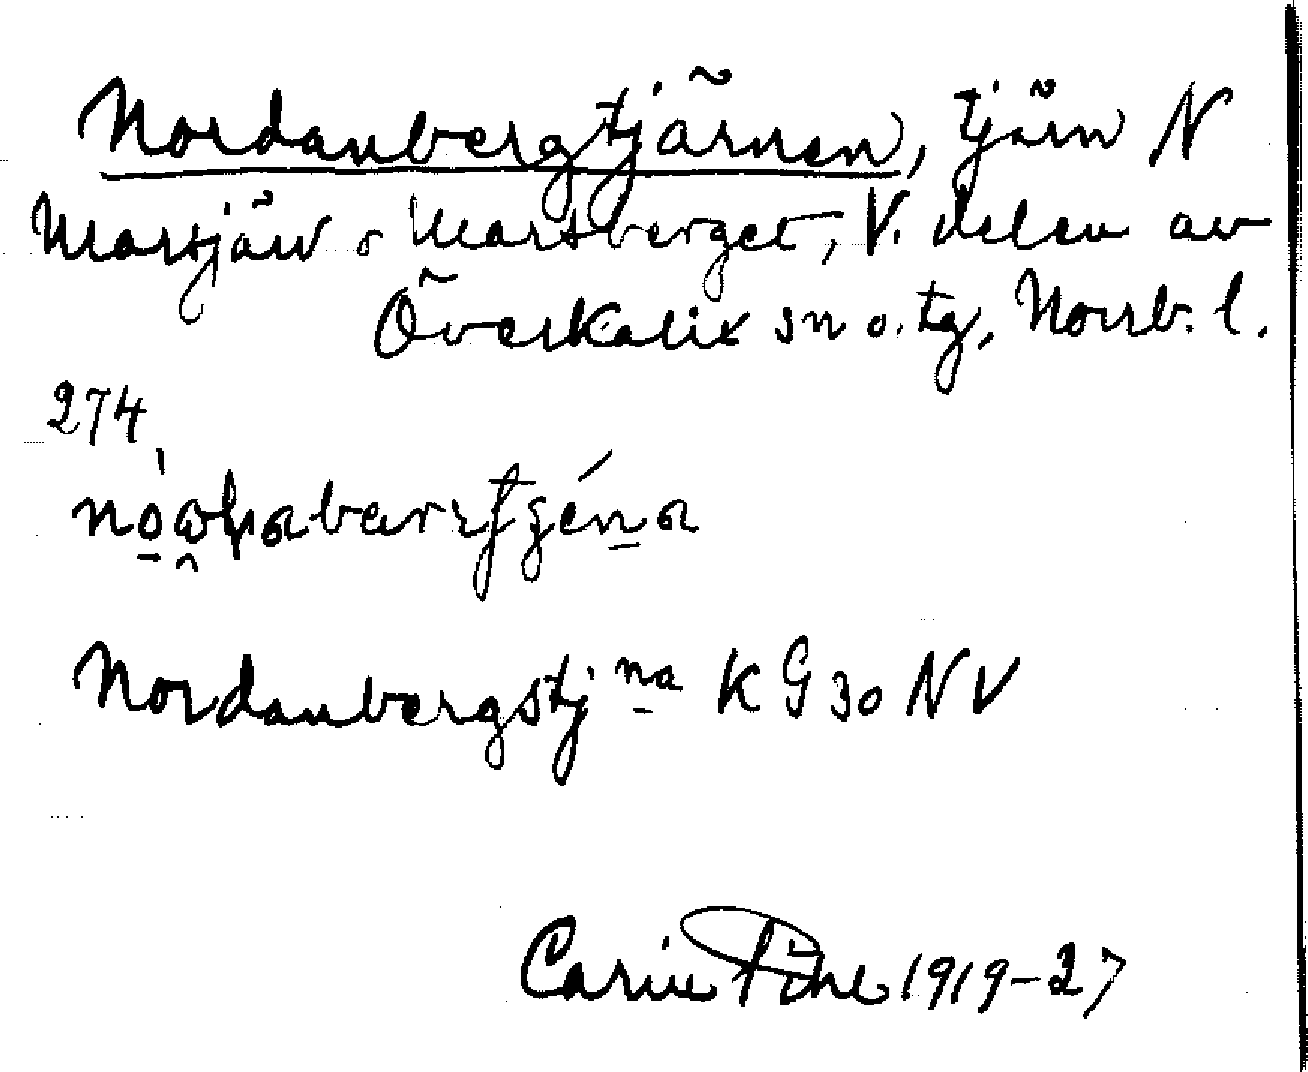 Nordanbergtjärnen, tjärn N
Martjärv o Martberget, V. delen av
Överkalix sn o. tg, Norrb. l.
274
Nordanbergstj na K G 30 NV
Carin Pihl 1919-27